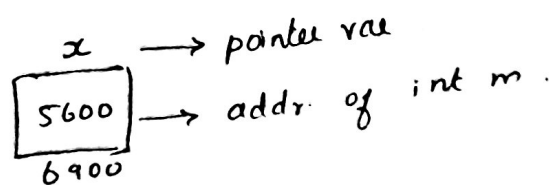 x → pointer var
5600 → addr. of int m.
6900